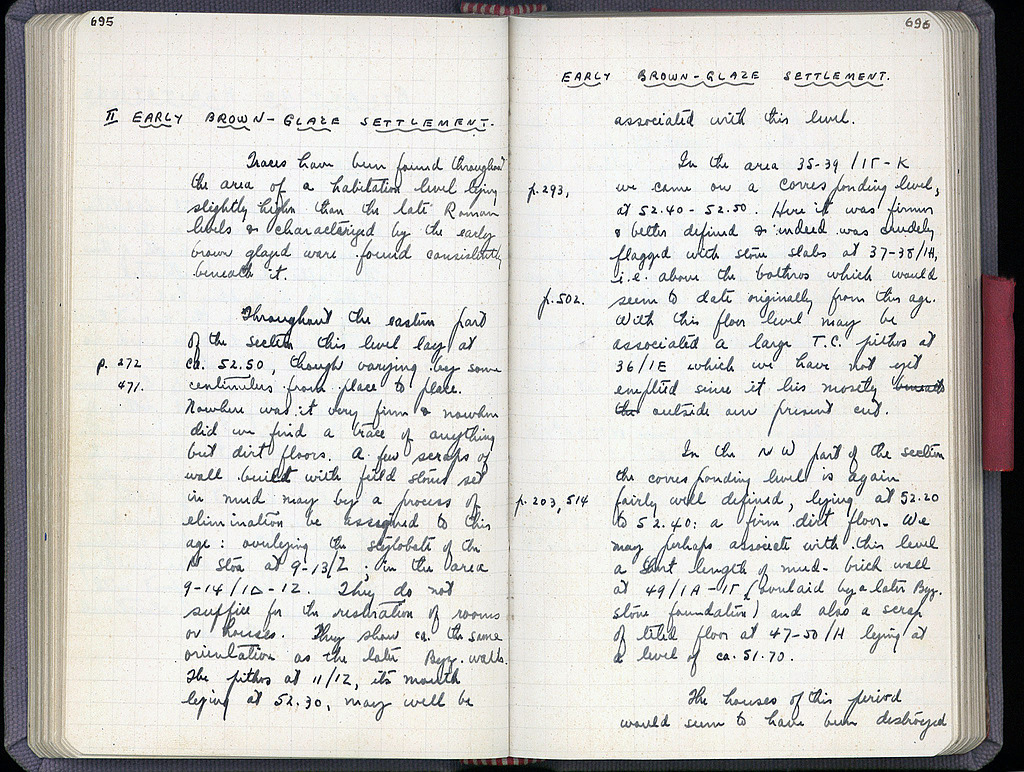 695
II EARLY BROWN-GLAZE SETTLEMENT.
Traces have been found throughout
the area of a habitation level lying
slightly higher than the late Roman
levels & characterized by the early
brown glazed ware found consistently
beneath it.
Throughout the eastern part
of the section this level lay at
p. 272 ca. 52.50, though varying by some
471. centimeters from place to place.
Nowhere was it very firm & nowhere
did we find a trace of anything
but dirt floors. A few scraps of
wall built with field stones set
in mud may by a process of
elimination be assigned to this
age: overlying the stylobate of the
Stoa at 9-13/Z; in the area
9-14/1Δ-12. They do not
suffice for the restoration of rooms
or houses. They show ca. the same
orientation as the later Byz. walls.
The pithos at 11/12, its mouth
lying at 52.30, may well be
696
EARLY BROWN-GLAZE SETTLEMENT.
associated with this level.
In the area 35-39/1Γ-K
p.293, we came on a corresponding level,
at 52.40-52.50. Here it was firmer
& better defined & indeed was crudely
flagged with stone slabs at 37-38/1H,
i.e. above the bothros which would
p.502. seem to date originally from this age.
With this floor level may be
associated a large T.C. pithos at
36/1E which we have not yet
emptied since it lies mostly beneath
the outside our present cut.
In the NW part of the section
the corresponding level is again
p.203, 514 fairly well defined, lying at 52.20
to 52.40: a firm dirt floor. We
may perhaps associate with this level
a short length of mud-brick wall
at 49/1A-1Γ (overlaid by a later Byz.
stone foundation) and also a scrap
of tiled floor at 47-50/H lying at
a level of ca. 51.70.
The houses of this period
would seem to have been destroyed